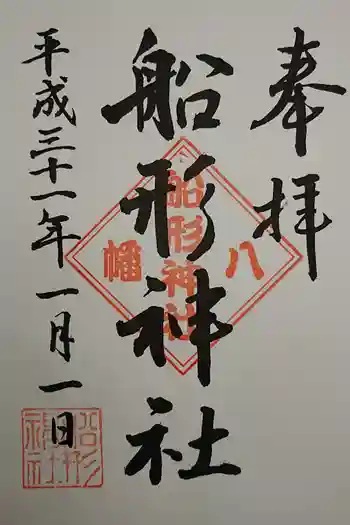 奉拝
船形神社
八幡
船形神社
平成三十一年一月一日